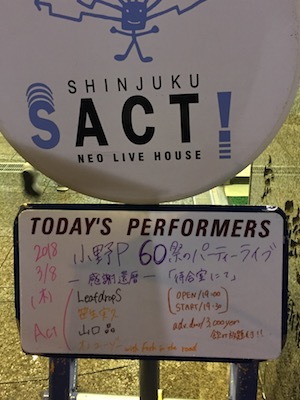 SHINJUKU
SACT!
NEO LIVE HOUSE
TODAY'S PERFORMERS
2018 小野P 60祭のパーティーライブ
3/8 ー感謝還暦ー 「待合室にて」
(木) LeafdropS OPEN/19:00
START/19:30
Act 山口晶 adv.door/3,000yen
with fork in the road